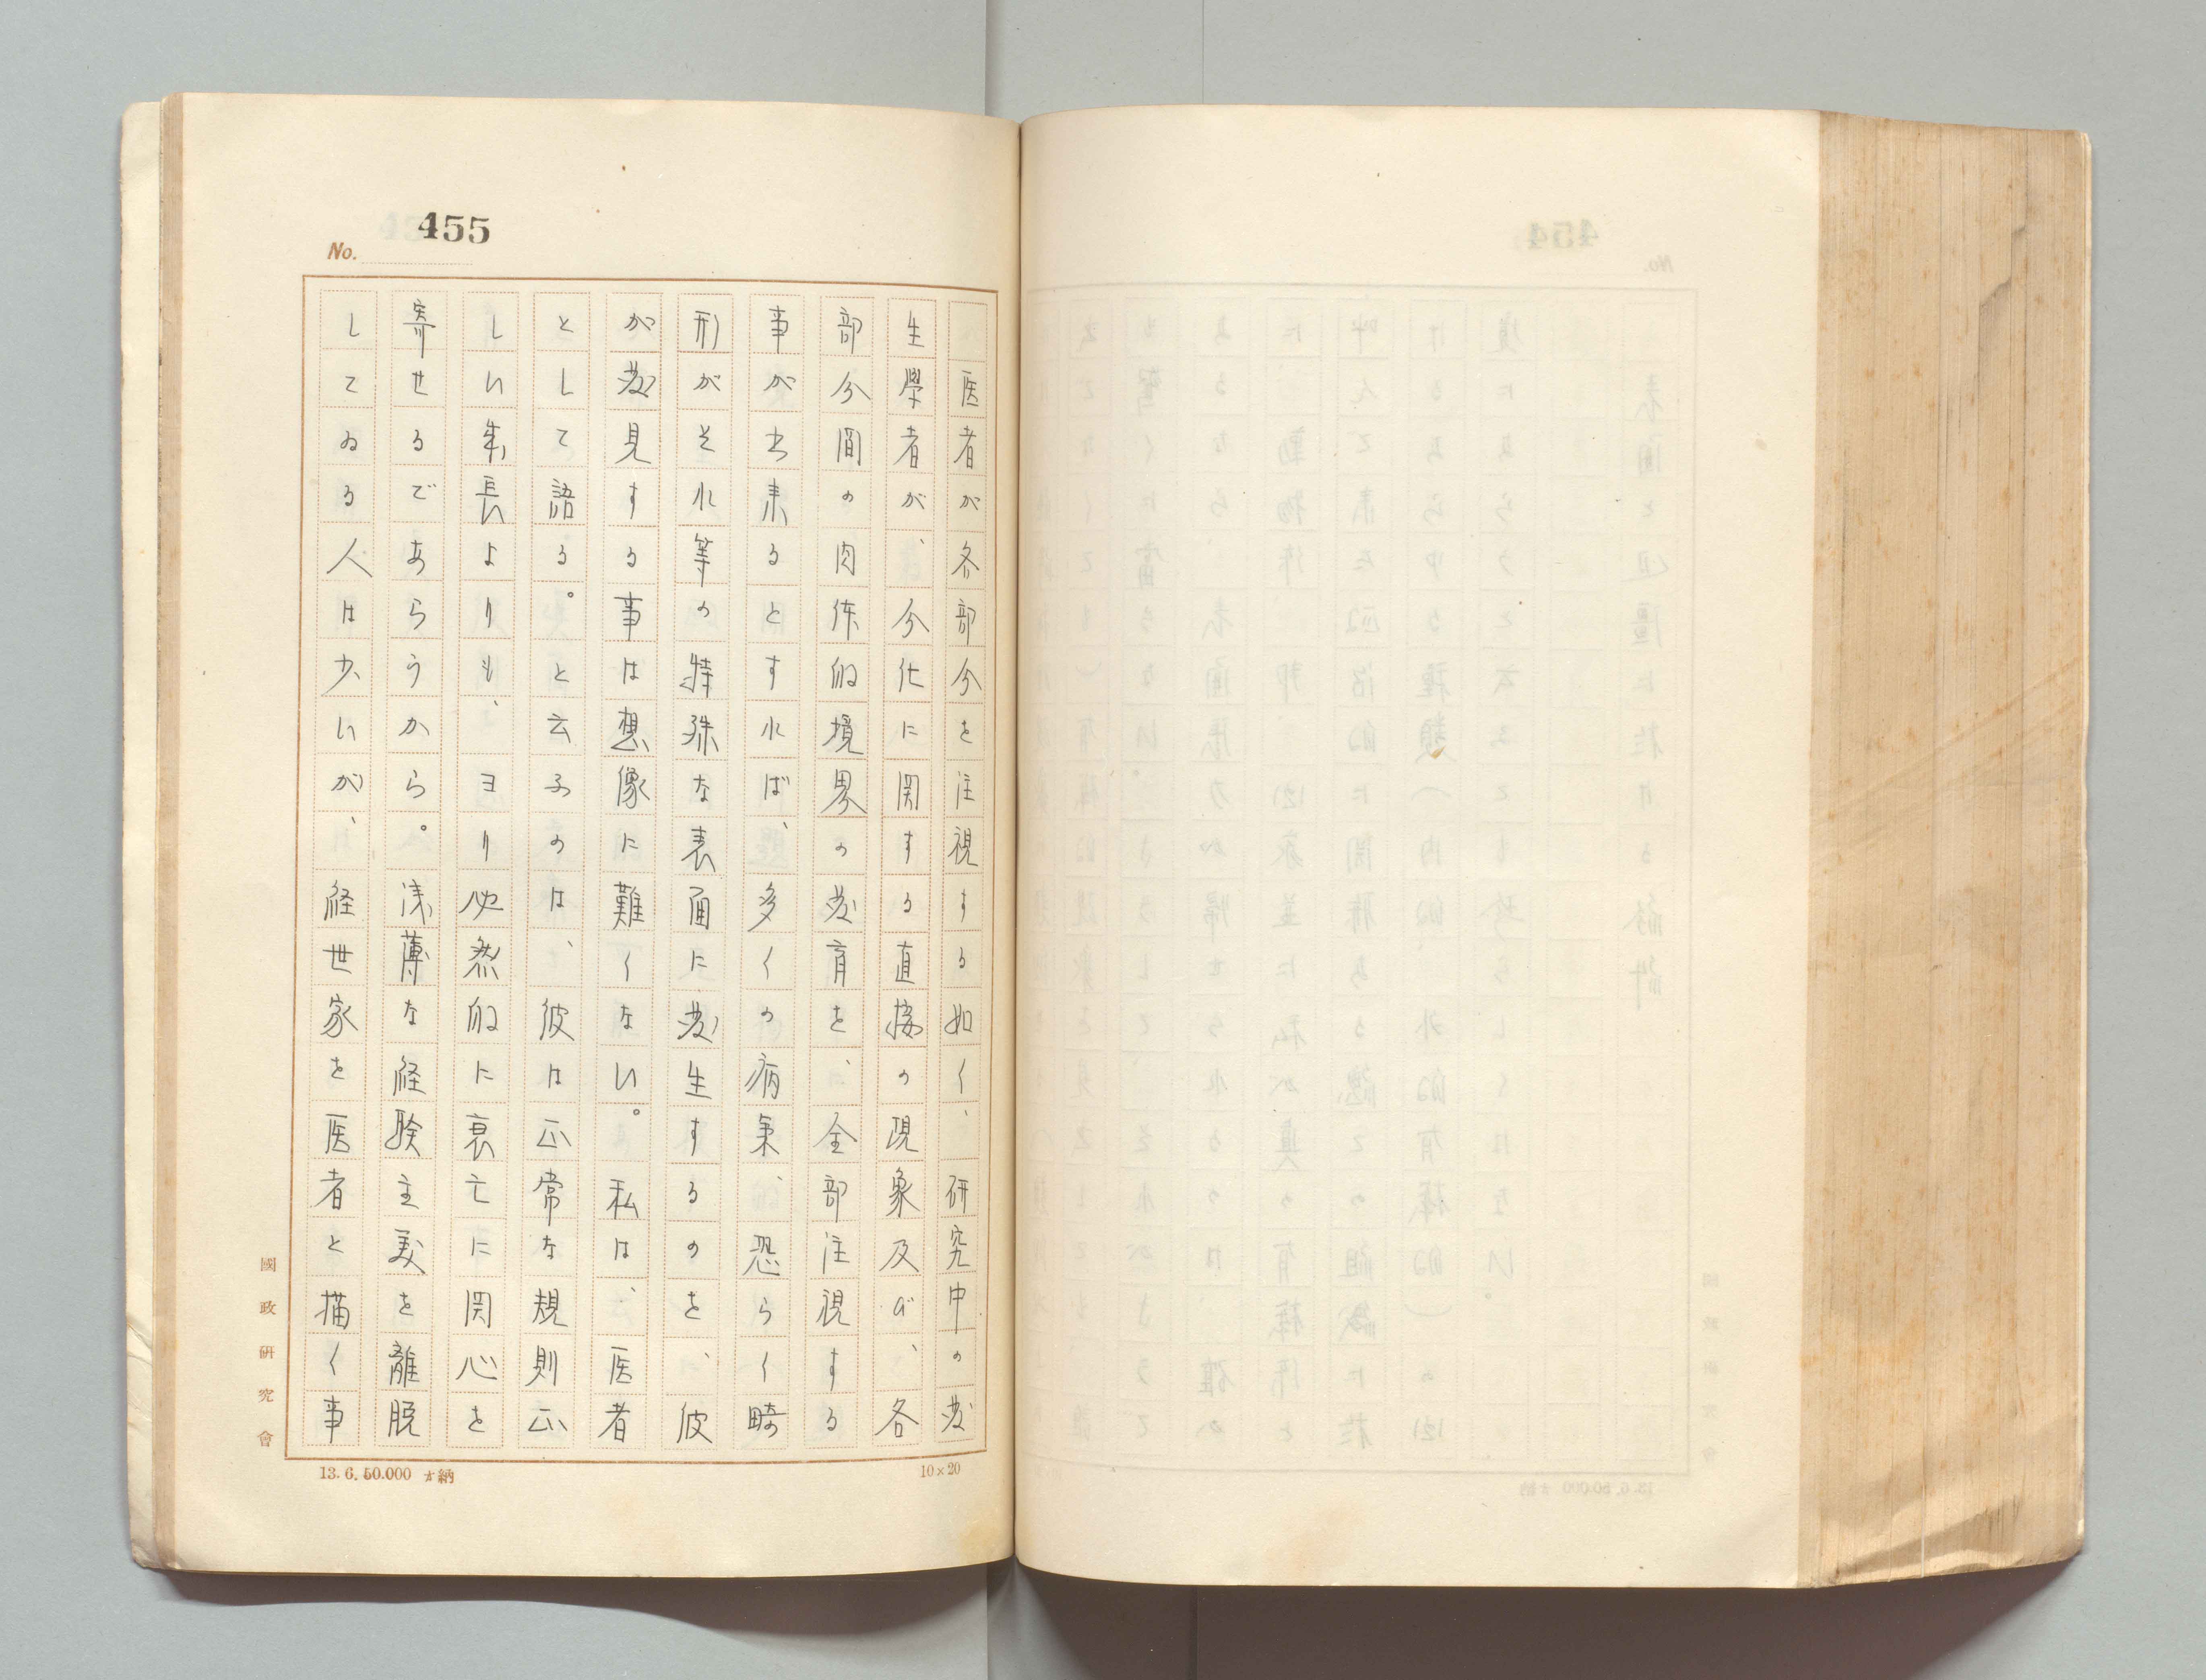 455
No.
医者が各部分を注視する如く、研究中の発
生學者が、分化に関する直接の現象及び、各
部分間の肉体的境界の発育を、全部注視する
事が出来るとすれば、多くの病巣、恐らく畸
形がそれ等の特殊な表面に発生するのを、彼
が発見する事は想像に難くない。私は、医者
として語る。と云ふのは、彼は正常な規則正
しい成長よりも、ヨリ必然的に衰亡に関心を
寄せるであらうから。浅薄な経験主義を離脱
してゐる人は少いが、経世家を医者と描く事
國政研究會
13.6.50.000 納
10×20